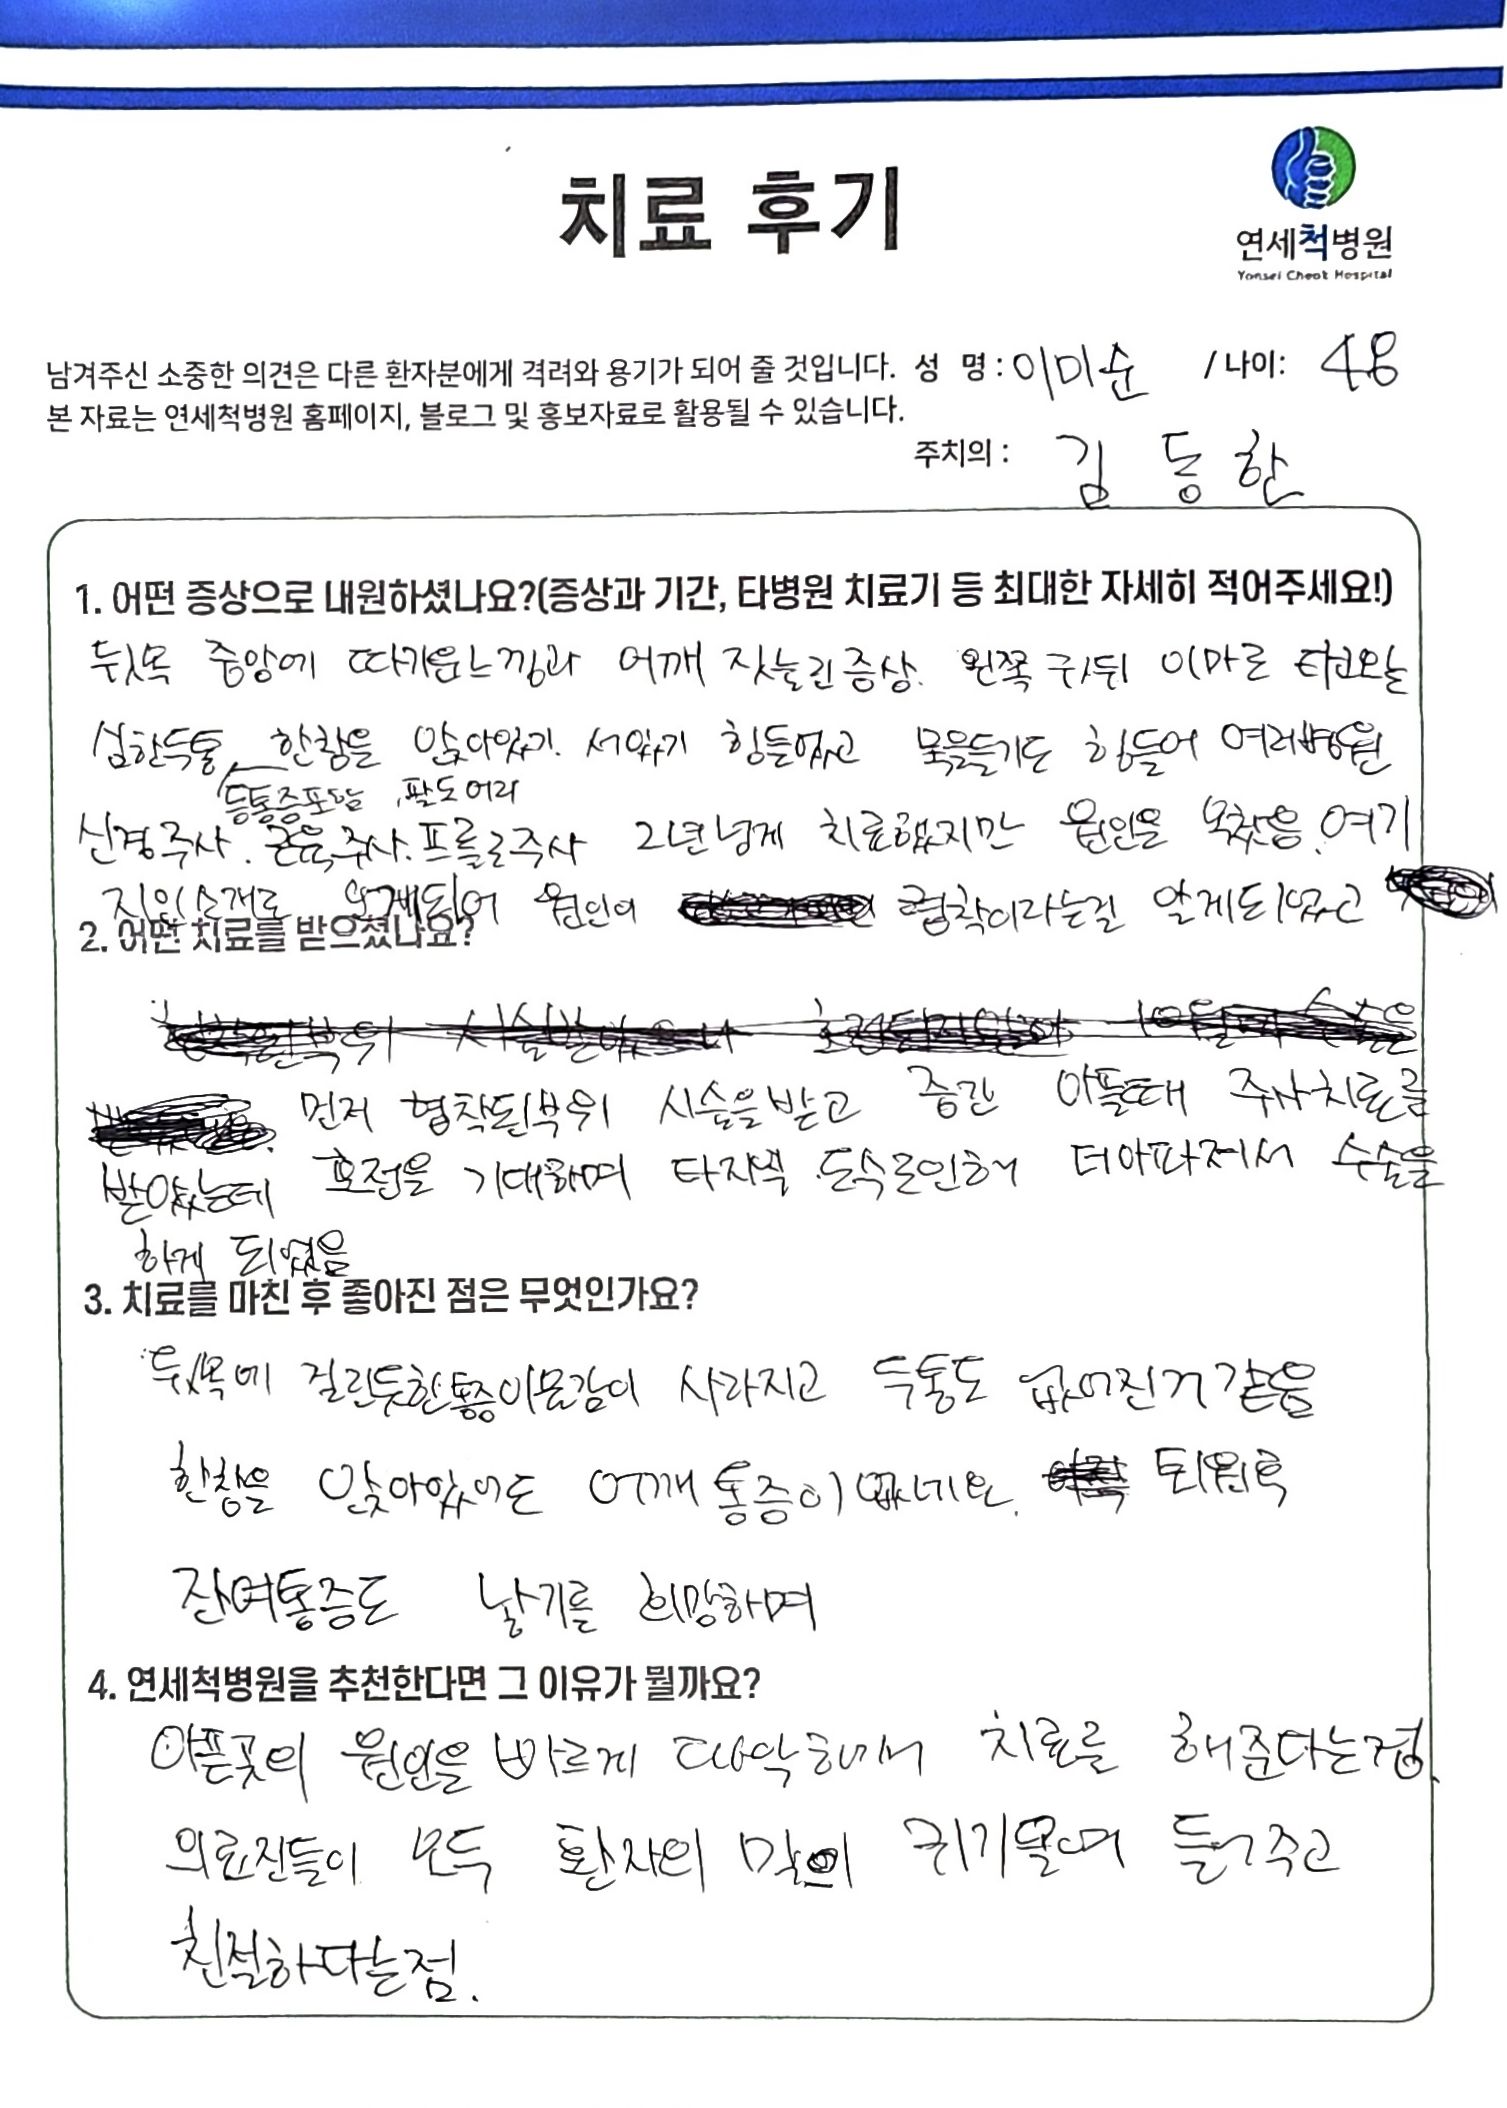 치료 후기
연세척병원
Yonsei Cheok Hospital
남겨주신 소중한 의견은 다른 환자분에게 격려와 용기가 되어 줄 것입니다. 성 명 : 이미순 / 나이: 48
본 자료는 연세척병원 홈페이지, 블로그 및 홍보자료로 활용될 수 있습니다.
주치의 : 김동한
1. 어떤 증상으로 내원하셨나요?(증상과 기간, 타병원 치료기 등 최대한 자세히 적어주세요!)
뒷목 중앙에 따가운느낌과 어깨 짓눌린증상. 왼쪽 귀뒤 이마로 타고오는
심한두통 한참을 앉아있기. 서있기 힘들었고 목을들기도 힘들어 여러병원
등통증포함, 팔도어리
신경주사. 근육주사. 프롤로주사 2년넘게 치료했지만 원인을 못찾음. 여기
지인소개로 오게되어 원인이 협착이라는걸 알게되었고
2. 어떤 치료를 받으셨나요?
먼저 협착된부위 시술을받고 중간 아플때 주사치료를
받았는데 호전을 기대하며 타자쭉 하게 더아파져서 수술을
하게 되었음
3. 치료를 마친 후 좋아진 점은 무엇인가요?
뒷목에 질린듯한통증이물감이 사라지고 두통도 없어진거같음
한참을 앉아있어도 어깨통증이없네요. 퇴원후
잔여통증도 낳기를 희망하며
4. 연세척병원을 추천한다면 그 이유가 뭘까요?
아픈곳의 원인을 빠르게 파악해서 치료를 해준다는점.
의료진들이 모두 환자의 말에 귀기울여 들어주고
친절하다는점.